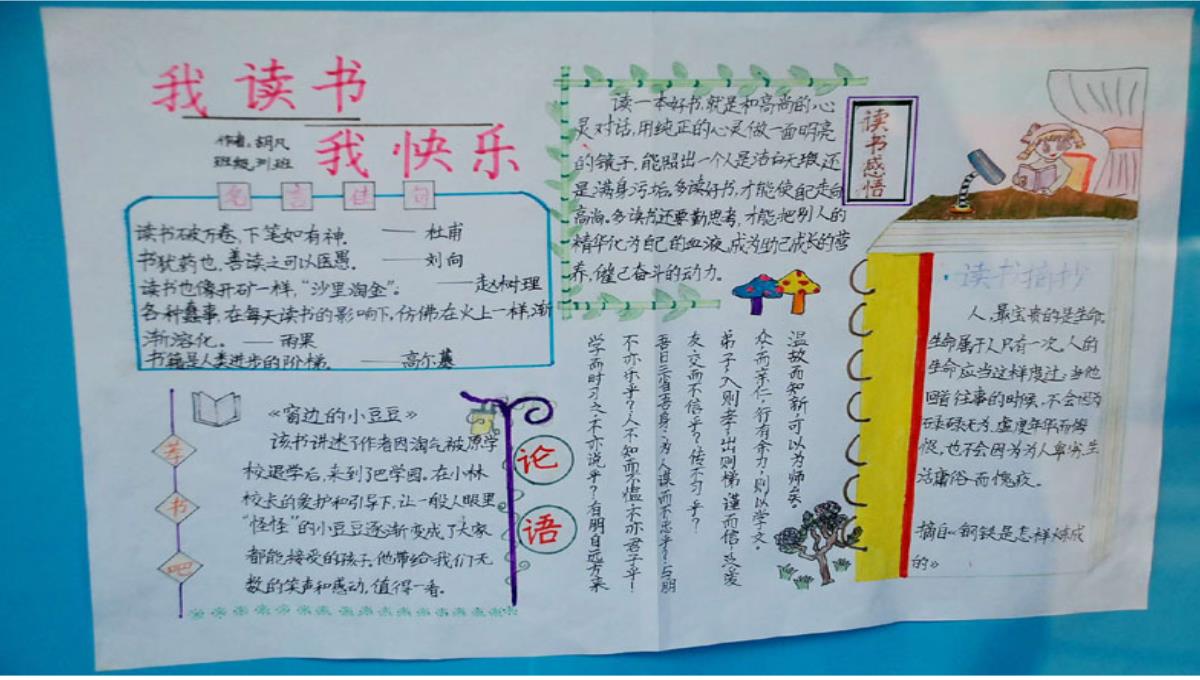 我读书
我快乐
作者：胡凡
班级：班
名言佳句
读书破万卷，下笔如有神。 —— 杜甫
书犹药也，善读之可以医愚。 —— 刘向
读书也像开矿一样，“沙里淘金”。 ——赵树理
各种蠢事，在每天读书的影响下，仿佛在火上一样，渐
渐溶化。 —— 雨果
书籍是人类进步的阶梯。 ——高尔基
荐书吧
《窗边的小豆豆》
该书讲述了作者因淘气被原学
校退学后，来到了巴学园。在小林
校长的爱护和引导下，让一般人眼里
“怪怪”的小豆豆逐渐变成了大家
都能接受的孩子，他带给我们无
数的笑声和感动，值得一看。
读一本好书，就是和高尚的心
灵对话，用纯正的心灵做一面明亮
的镜子，能照出一个人是洁白无瑕，还
是满身污垢。多读好书，才能使自己走向
高尚。多读书还要勤思考，才能把别人的
精华化为自己的血液，成为自己成长的营
养，催己奋斗的动力。
读书感悟
论语
温故而知新，可以为师矣。
众而亲仁，行有余力，则以学文。
弟子，入则孝，出则梯，谨而信，泛爱
友，交而不信乎？传不习乎？
吾日三省吾身：为人谋而不忠乎？与朋
不亦乐乎？人不知而不愠，不亦君子乎！
学而时习之，不亦说乎？有朋自远方来
读书摘抄
人，最宝贵的是生命，
生命属于人只有一次，人的
生命应当这样度过：当他
回首往事的时候，不会因为
碌碌无为，虚度年华而悔
恨，也不会因为为人卑劣，生
活庸俗而愧疚。
摘自《钢铁是怎样炼成
的》